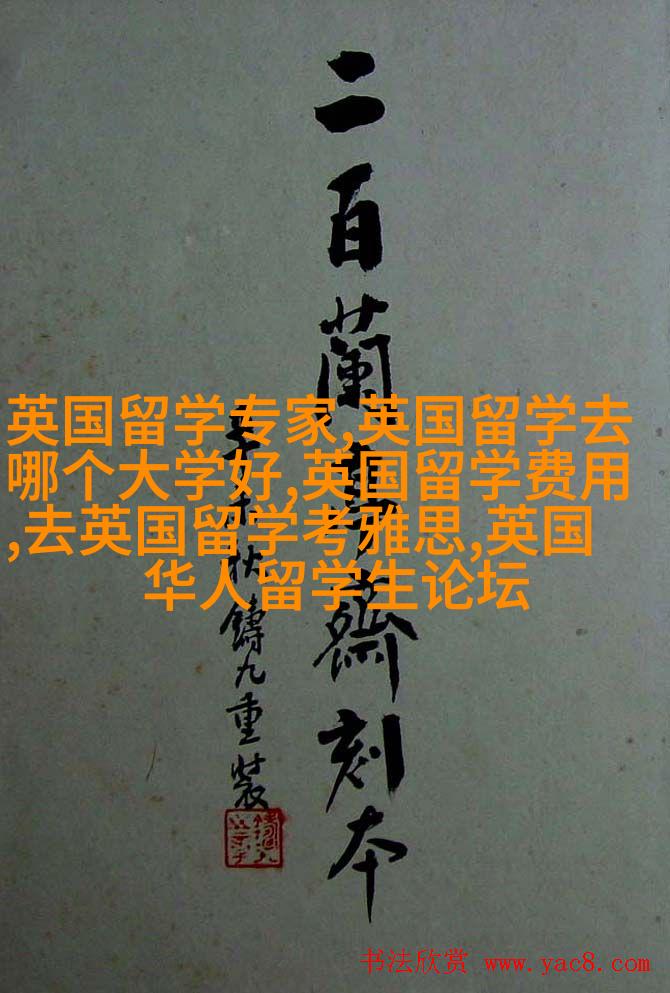 二百蘭亭齋刻本
未秋鑄九重裝
英国留学专家,英国留学去
哪个大学好,英国留学费用
,去英国留学考雅思,英国
华人留学生论坛
书法欣赏 www.yac8.com